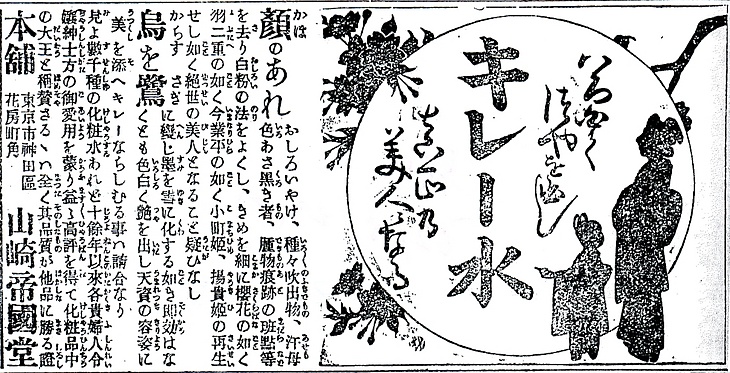 いち早く
つやを出し
キレー水
真正の
美人となる
顔のあれ おしろいやけ、種々吹出物、汗母
を去り白粉の法をよくし、きめを細に櫻花の如く
色あさ黒き者、腫物痕跡の斑點等
羽二重の如く今業平の如く小町姫、揚貴姫の再生
せし如く絶世の美人となること疑ひなし
烏を鷺 からす さぎに變じ墨を雪に化する如き即効はな
くとも色白く艶を出し天資の容姿に
美を添へキレーならしむる事ハ請合なり
見よ數千種の化粧水あれど十餘年以來各貴婦人令
孃紳士方の御愛用を蒙り益々高評を得て化粧品中
の大王と稱賛さるゝハ全く其品質が他品に勝る證
本舗 東京市神田區
花房町角 山崎帝國堂